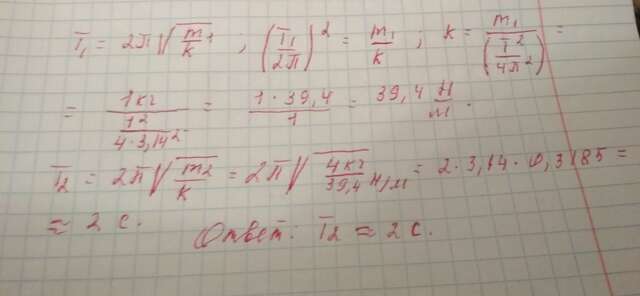 T₁ = 2π√(m₁/k) , (T₁/2π)² = m₁/k ; k = m₁/(T²/4π²) =
= 1кг/(1²/4·3,14²) = 1·39,4/1 = 39,4 Н/м.
T₂ = 2π√(m₂/k) = 2π√(4кг/39,4н/м) = 2·3,14·0,3185 =
≈ 2 с. Ответ: T₂ ≈ 2 с.